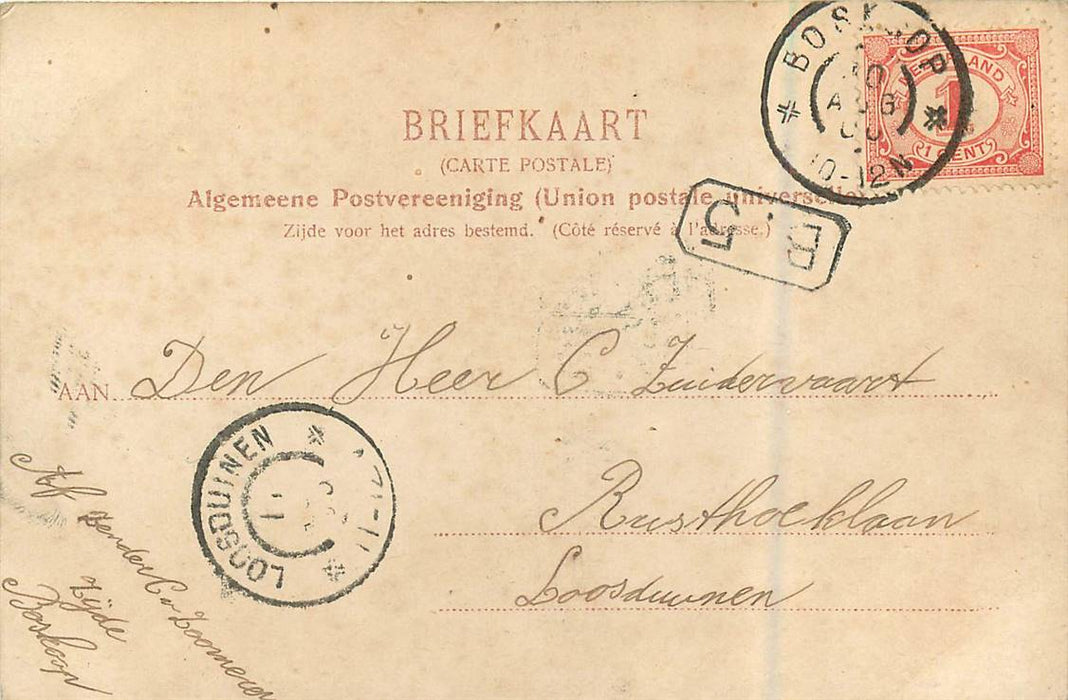 BRIEFKAART
(CARTE POSTALE)
Algemeene Postvereeniging (Union postale universelle)
Zijde voor het adres bestemd. (Côté réservé à l'adresse.)
BOSKOOP
10
AUG
10-12N
NEDERLAND
1
1 CENT
B 5
AAN Den Heer C Zuidervaart
Rusthoeklaan
Loosduinen
LOOSDUINEN
Afzender C v
Zijde
Boskoop